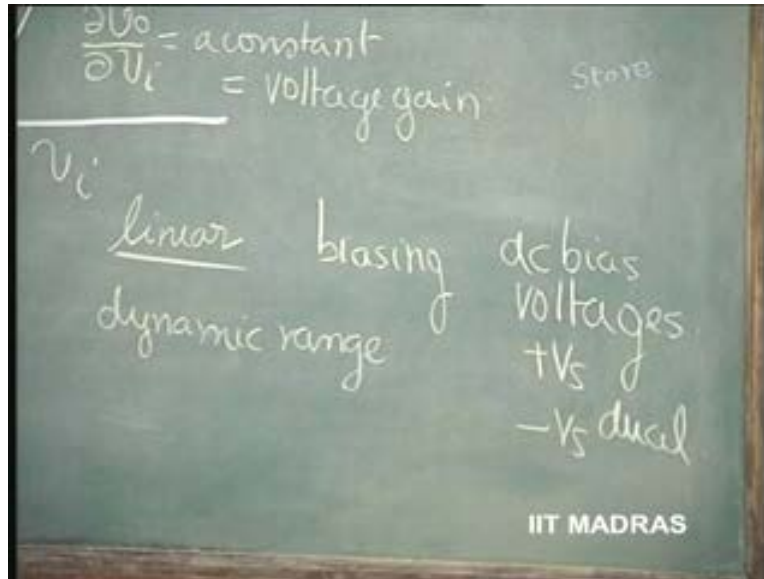 ∂v₀/∂vᵢ = a constant
= voltage gain
Store
vᵢ
linear biasing dc bias
voltages
dynamic range
+Vs
-Vs dual
IIT MADRAS